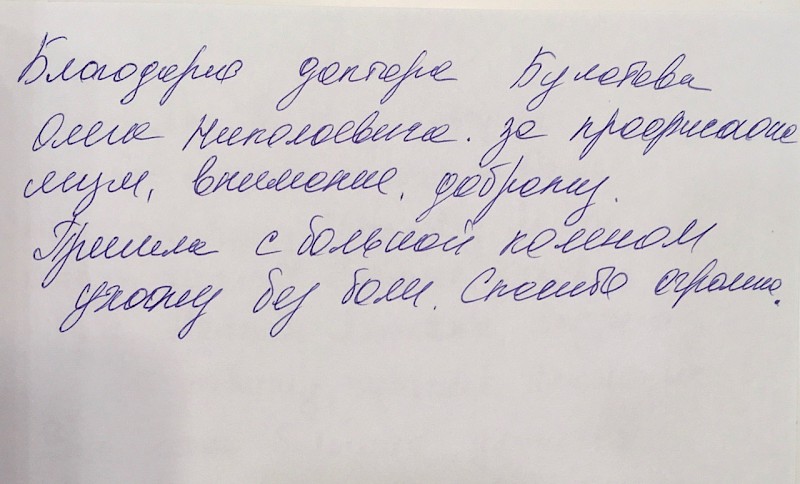 Благодарю доктора Булатова
Олега Николаевича. за професиона
лизм, внимание, доброту.
Пришла с больной коленом
ухожу без боли. Спасибо огромное.